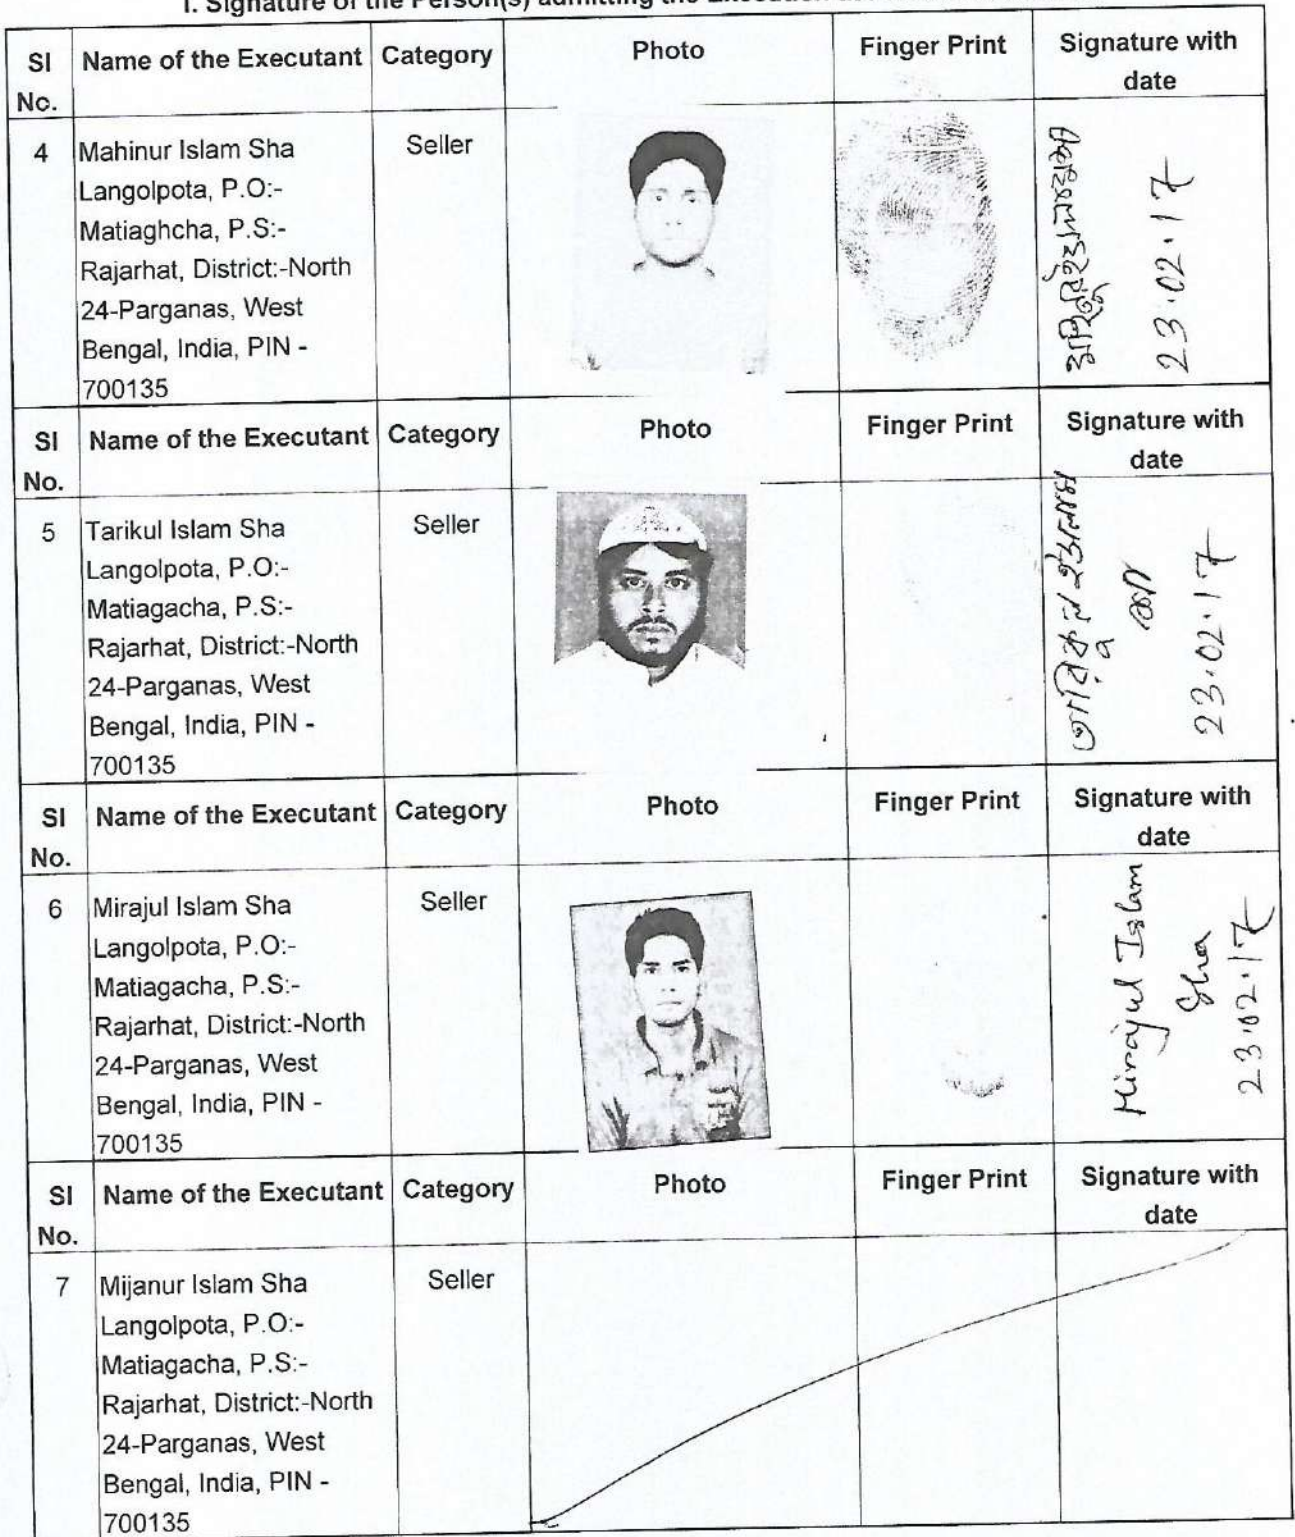 I. Signature of the Person(s) admitting the Execution
Sl No. Name of the Executant Category Photo Finger Print Signature with date
4 Mahinur Islam Sha Seller
Langolpota, P.O:-
Matiaghcha, P.S:-
Rajarhat, District:-North
24-Parganas, West
Bengal, India, PIN -
700135
23.02.17
Sl No. Name of the Executant Category Photo Finger Print Signature with date
5 Tarikul Islam Sha Seller
Langolpota, P.O:-
Matiagacha, P.S:-
Rajarhat, District:-North
24-Parganas, West
Bengal, India, PIN -
700135
তারিকুল ইসলাম
সা
23.02.17
Sl No. Name of the Executant Category Photo Finger Print Signature with date
6 Mirajul Islam Sha Seller
Langolpota, P.O:-
Matiagacha, P.S:-
Rajarhat, District:-North
24-Parganas, West
Bengal, India, PIN -
700135
Mirajul Islam
Sha
23.02.17
Sl No. Name of the Executant Category Photo Finger Print Signature with date
7 Mijanur Islam Sha Seller
Langolpota, P.O:-
Matiagacha, P.S:-
Rajarhat, District:-North
24-Parganas, West
Bengal, India, PIN -
700135